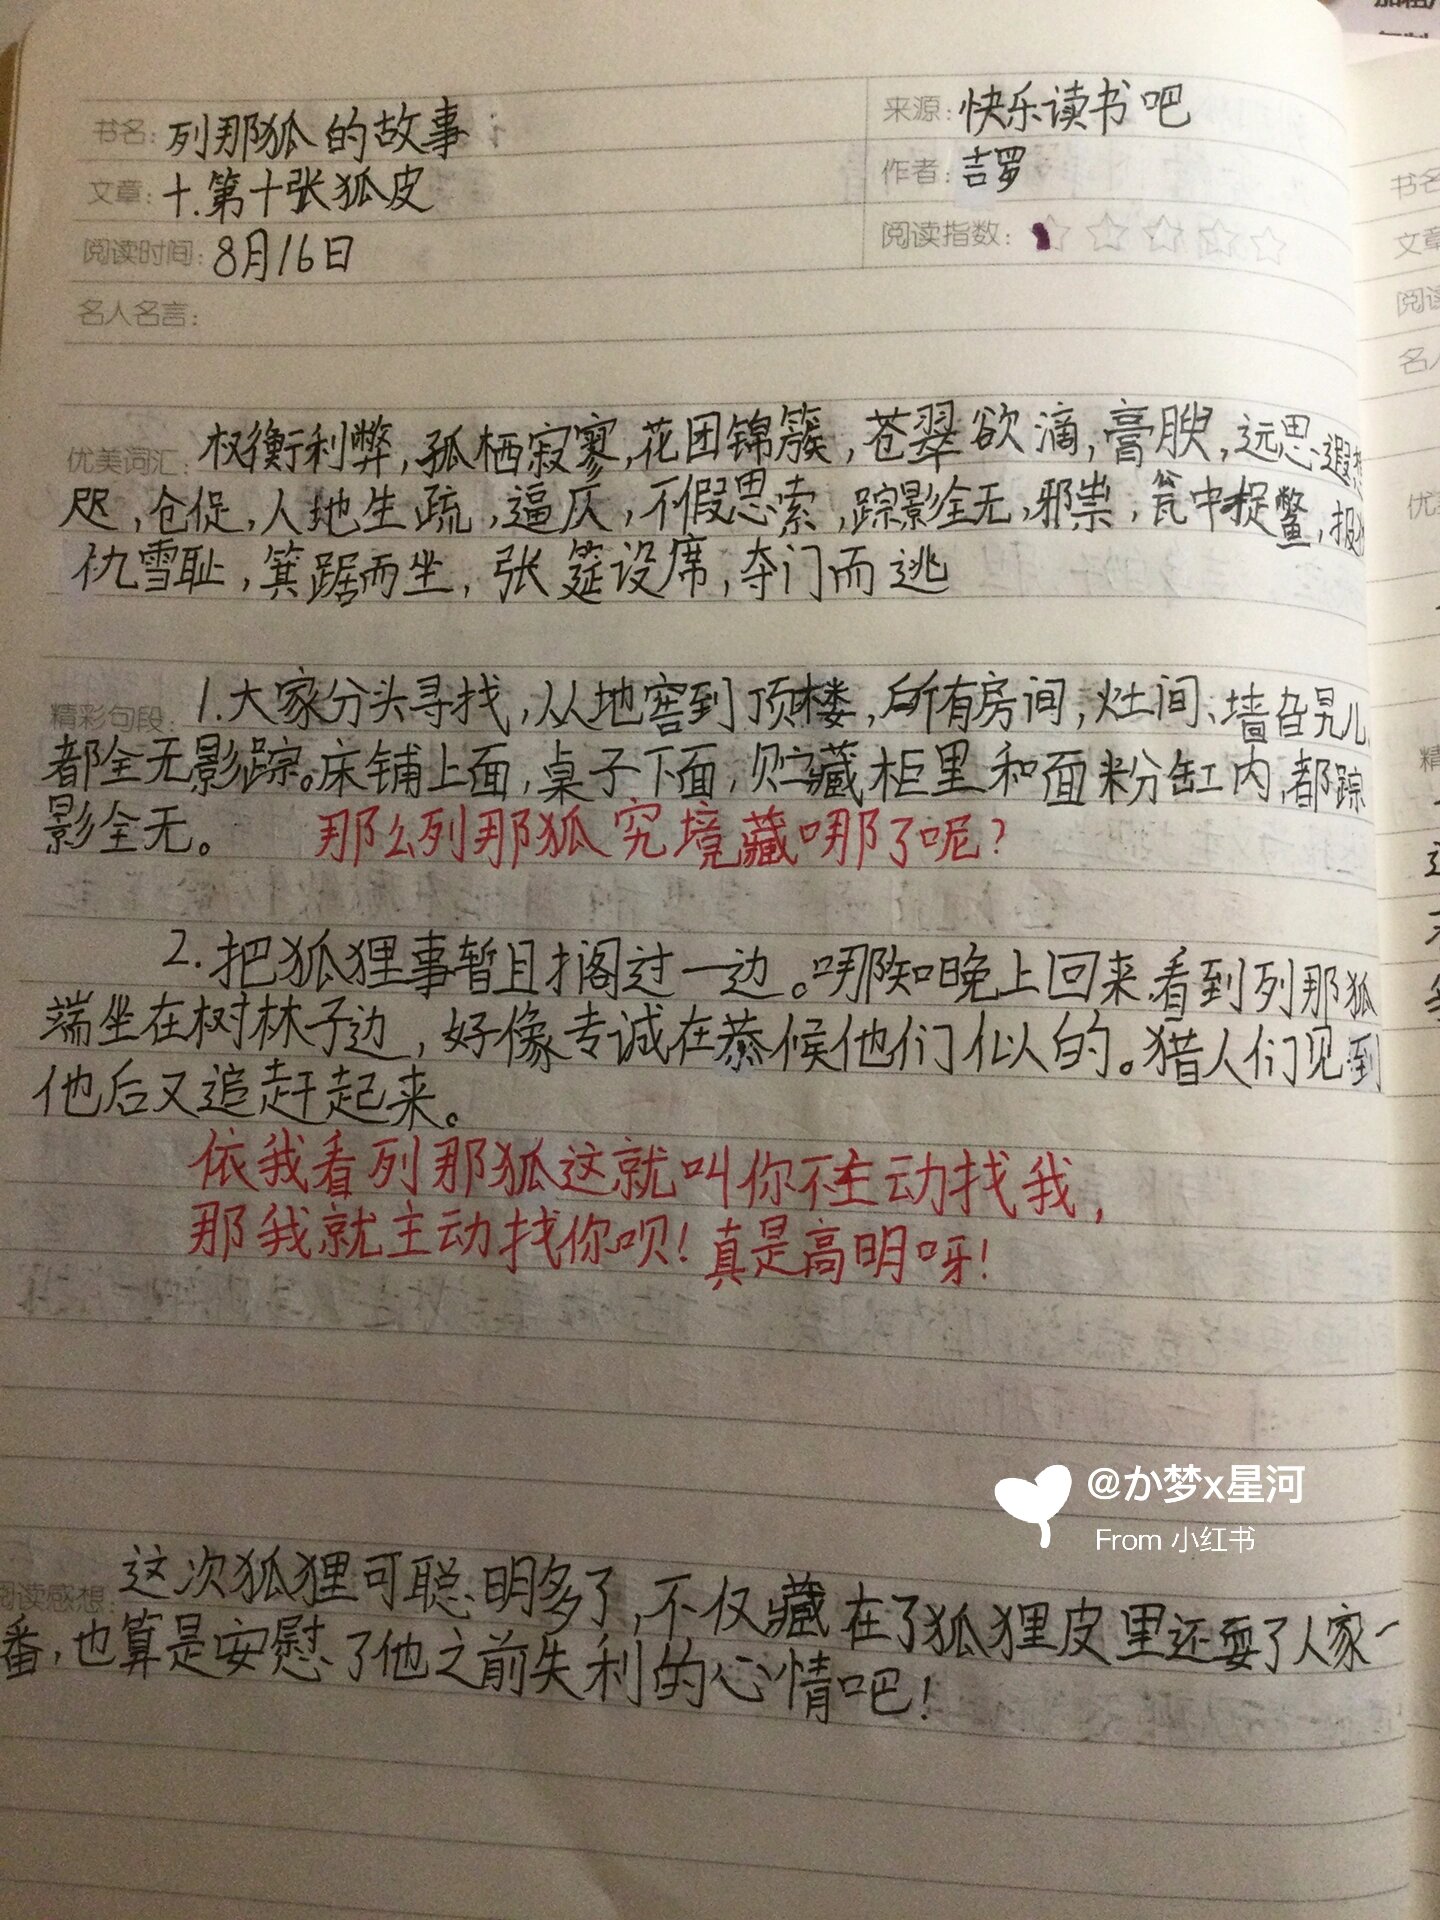 书名: 列那狐的故事
来源: 快乐读书吧
文章: 十.第十张狐皮
作者: 吉罗
阅读时间: 8月16日
阅读指数:
名人名言:
优美词汇: 权衡利弊,孤栖寂寥,花团锦簇,苍翠欲滴,膏腴,远思遐想
咫,仓促,人地生疏,逼仄,不假思索,踪影全无,邪祟,瓮中捉鳖,报
仇雪耻,箕踞而坐,张筵设席,夺门而逃
精彩句段: 1.大家分头寻找,从地窖到顶楼,所有房间,灶间、墙旮旯儿,
都全无影踪。床铺上面,桌子下面,贮藏柜里和面粉缸内,都踪
影全无。 那么列那狐究境藏哪了呢?
2.把狐狸事暂且搁过一边。哪知晚上回来,看到列那狐
端坐在树林子边,好像专诚在恭候他们似的。猎人们见到
他后又追赶起来。
依我看列那狐这就叫你不主动找我,
那我就主动找你呗!真是高明呀!
@か梦x星河
From 小红书
阅读感想: 这次狐狸可聪明多了,不仅藏在了狐狸皮里还耍了人家一
番,也算是安慰了他之前失利的心情吧!
书名
文章
阅读
名人